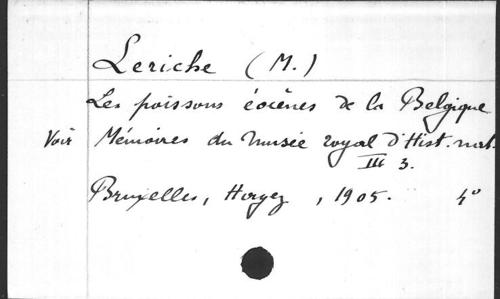 Leriche (M.)
Les poissons éocènes de la Belgique
Voir Mémoires du Musée royal d'Hist. nat.
III 3.
Bruxelles, Hayez, 1905. 4°